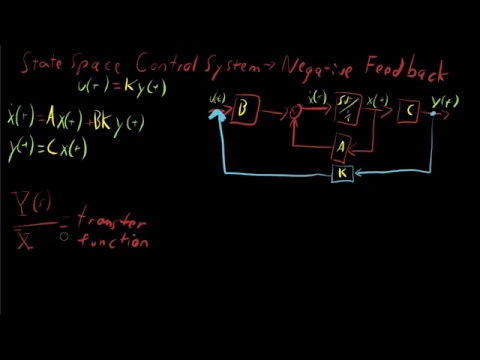 State Space Control System → Negative Feedback
u(t) = Ky(t)
ẋ(t) = Ax(t) + BKy(t)
y(t) = Cx(t)
u(t) B ẋ(t) x(t) C y(t)
A
K
Y(s)
X
= transfer
function